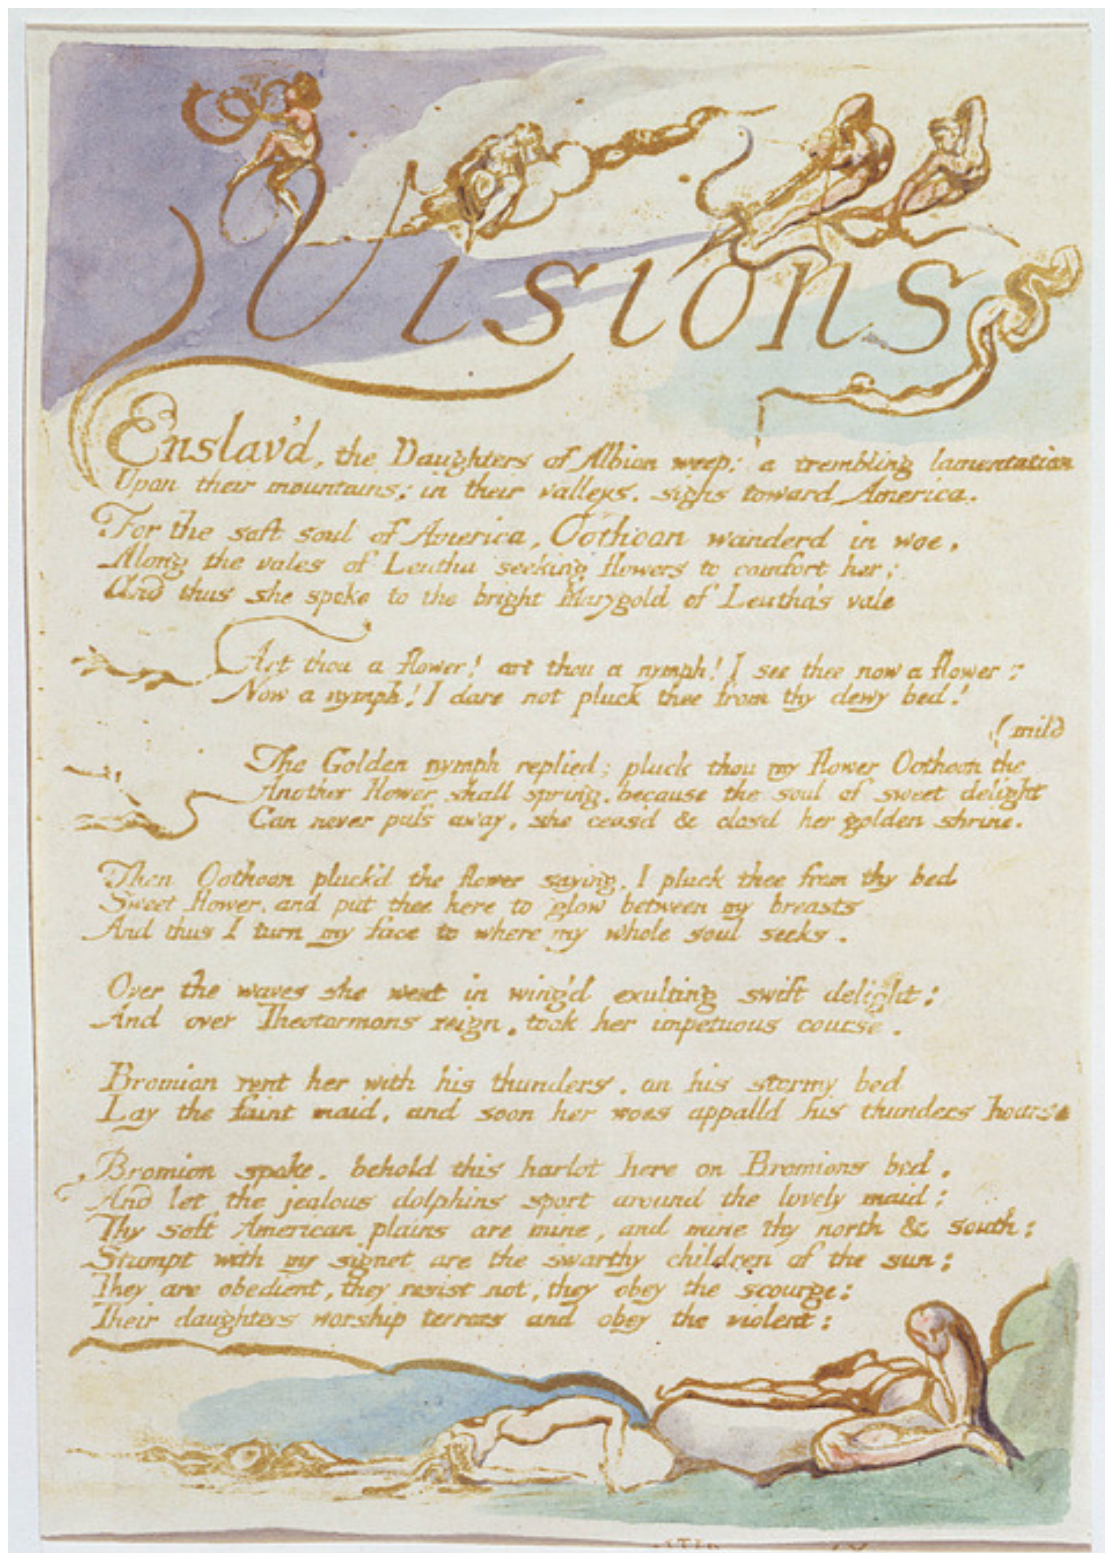 Visions
Enslav'd, the Daughters of Albion weep: a trembling lamentation
Upon their mountains; in their valleys. sighs toward America.
For the soft soul of America, Oothoon wanderd in woe,
Along the vales of Leutha seeking flowers to comfort her;
And thus she spoke to the bright Marygold of Leutha's vale
Art thou a flower! art thou a nymph! I see thee now a flower;
Now a nymph! I dare not pluck thee from thy dewy bed!
(mild
The Golden nymph replied; pluck thou my flower Oothoon the
Another flower shall spring, because the soul of sweet delight
Can never pass away. she ceas'd & clos'd her golden shrine.
Then Oothoon pluck'd the flower saying, I pluck thee from thy bed
Sweet flower. and put thee here to glow between my breasts
And thus I turn my face to where my whole soul seeks.
Over the waves she went in wing'd exulting swift delight;
And over Theotormons reign, took her impetuous course.
Bromion rent her with his thunders. on his stormy bed
Lay the faint maid, and soon her woes appalld his thunders hoarse
Bromion spoke. behold this harlot here on Bromions bed,
And let the jealous dolphins sport around the lovely maid;
Thy soft American plains are mine, and mine thy north & south:
Stampt with my signet are the swarthy children of the sun:
They are obedient, they resist not, they obey the scourge:
Their daughters worship terrors and obey the violent: